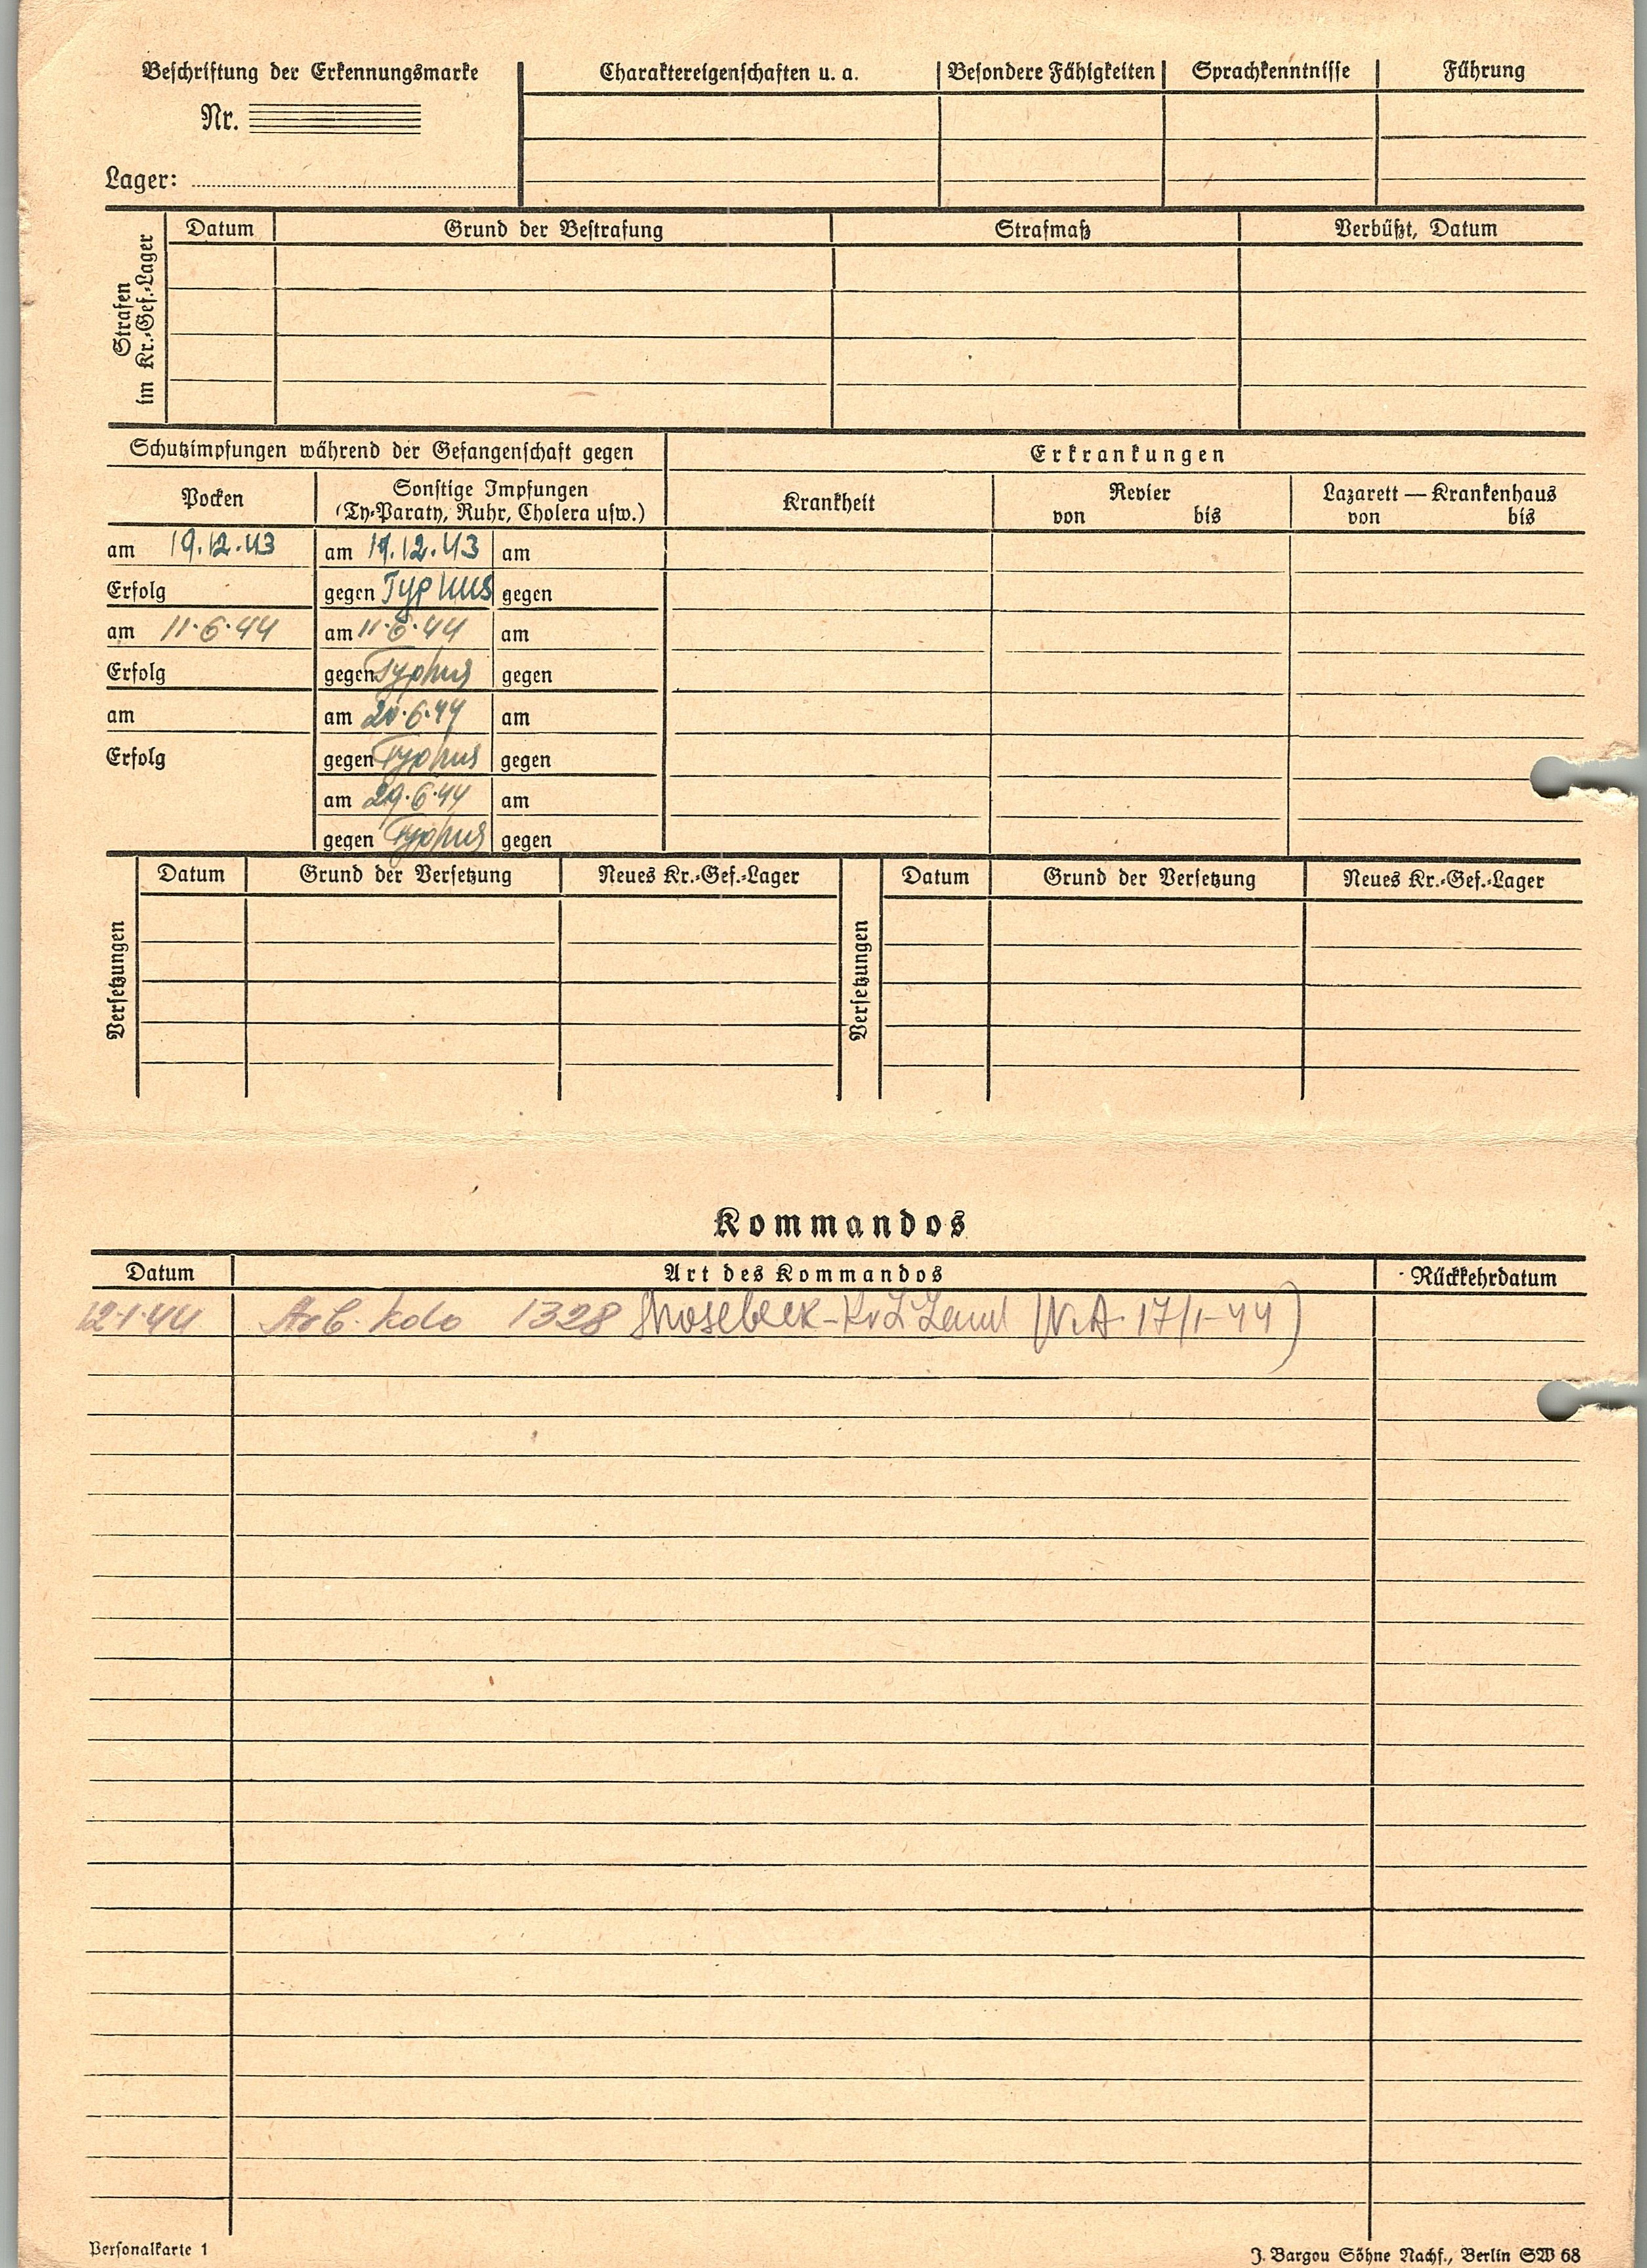 Beschriftung der Erkennungsmarke
Nr.
Lager:
Charaktereigenschaften u. a. Besondere Fähigkeiten Sprachkenntnisse Führung
Strafen im Kr.-Gef.-Lager
Datum Grund der Bestrafung Strafmaß Verbüßt, Datum
Schutzimpfungen während der Gefangenschaft gegen Erkrankungen
Pocken
Sonstige Impfungen
(Ty-Paraty, Ruhr, Cholera usw.)
Krankheit
Revier
von bis
Lazarett — Krankenhaus
von bis
am 19.12.43 am 19.12.43 am
Erfolg gegen Typhus gegen
am 11.6.44 am 11.6.44 am
Erfolg gegen Typhus gegen
am am 20.6.44 am
Erfolg gegen Typhus gegen
am 29.6.44 am
gegen Typhus gegen
Versetzungen
Datum Grund der Versetzung Neues Kr.-Gef.-Lager
Versetzungen
Datum Grund der Versetzung Neues Kr.-Gef.-Lager
Kommandos
Datum Art des Kommandos Rückkehrdatum
12.1.44 Arb. Kdo 1328 (N.A. 17/1-44)
Personalkarte 1
J. Bargou Söhne Nachf., Berlin SW 68